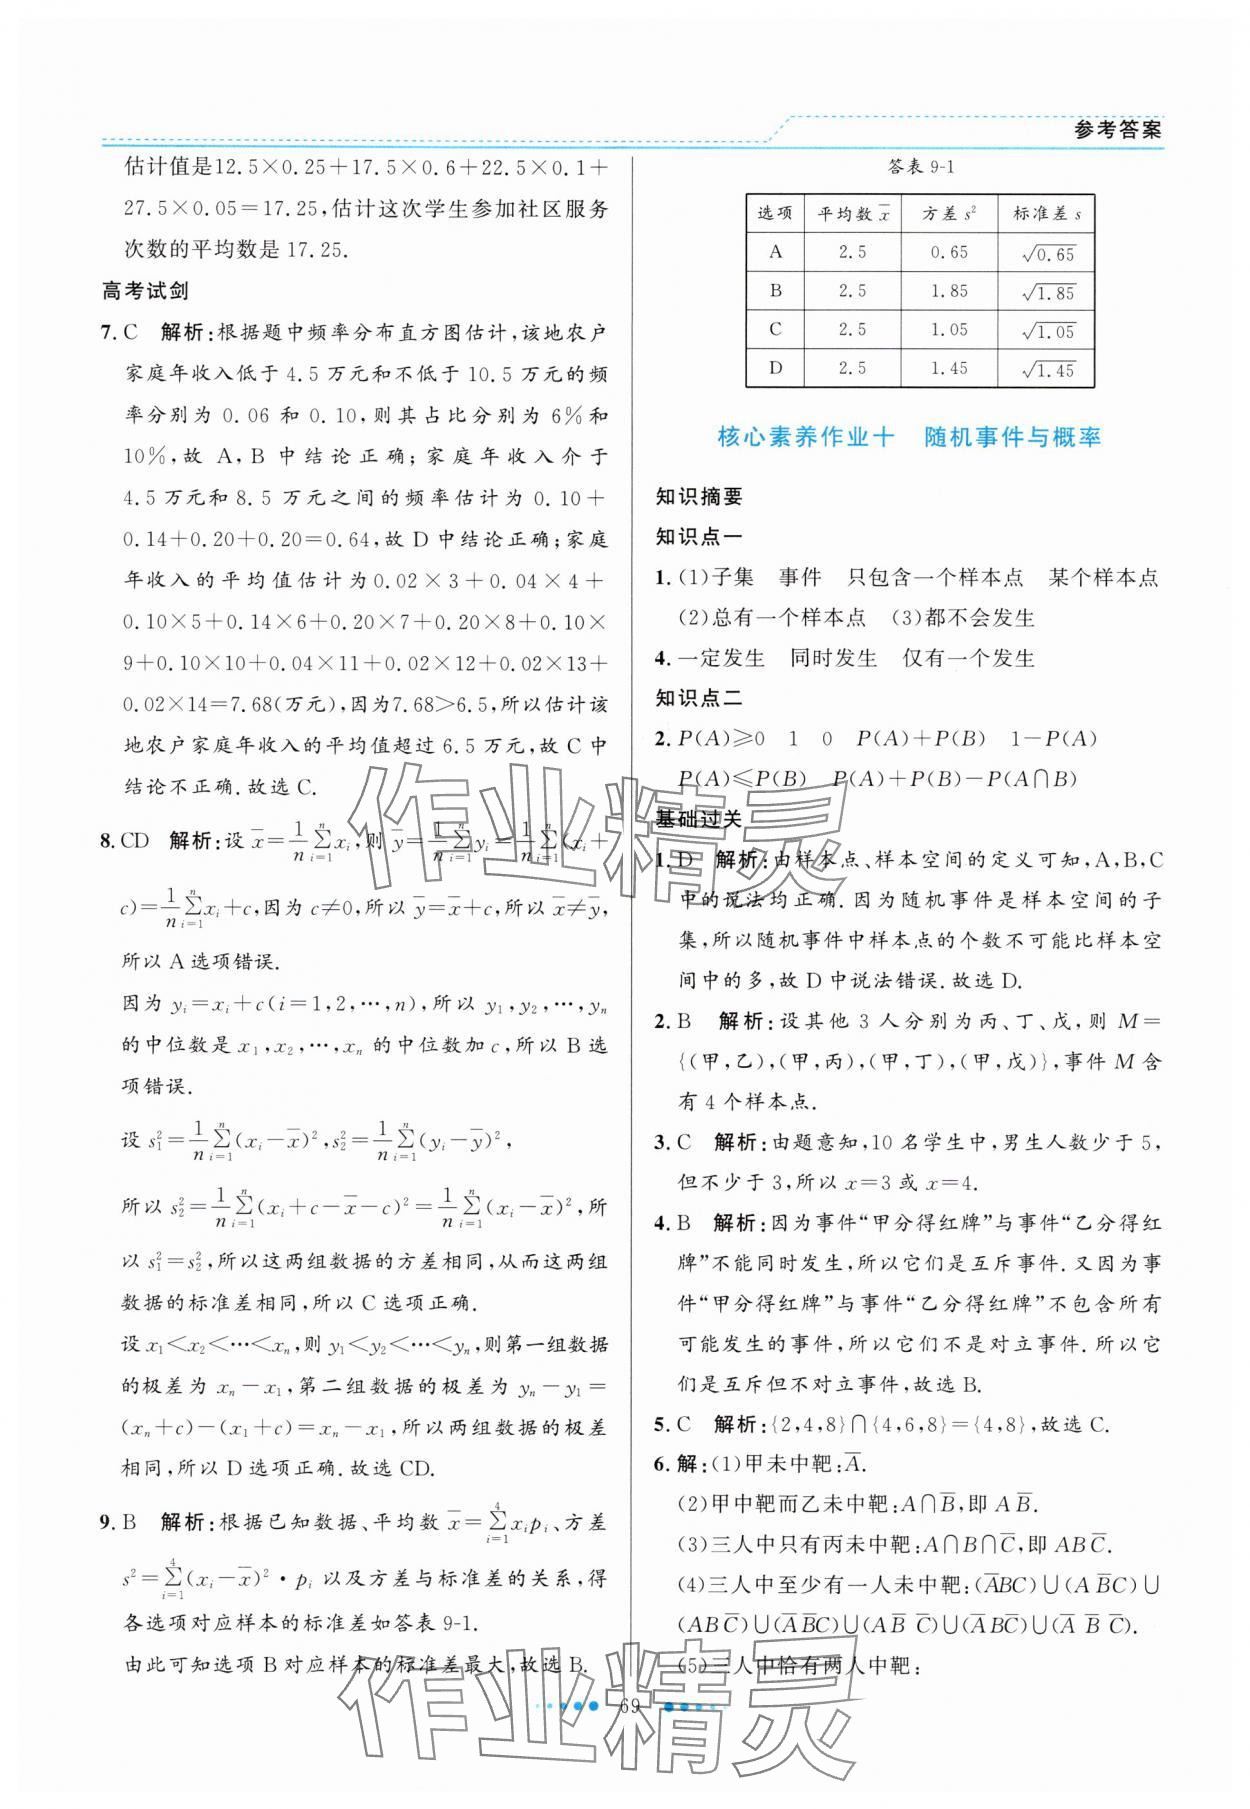 参考答案
估计值是12.5×0.25+17.5×0.4+22.5×0.1+
27.5×0.05=17.25,估计这次学生参加社区服务
次数的平均数是17.25.
高考试剑
7. C 解析:根据题中频率分布直方图估计,该地农户
家庭年收入低于4.5万元和不低于10.5万元的频
率分别为0.06和0.10,则其占比分别为6%和
10%,故A,B中结论正确;家庭年收入介于
4.5万元和8.5万元之间的频率估计为0.10+
0.14+0.20+0.20=0.64,故D中结论正确;家庭
年收入的平均值估计为0.02×3+0.04×4+
0.10×5+0.14×6+0.20×7+0.20×8+0.10×
9+0.10×10+0.04×11+0.02×12+0.02×13+
0.02×14=7.68(万元),因为7.68>6.5,所以估计该
地农户家庭年收入的平均值超过6.5万元,故C中
结论不正确.故选C.
8. CD 解析:设x̅=1/n ∑ⁿᵢ₌₁xᵢ,则y̅=1/n ∑ⁿᵢ₌₁yᵢ=1/n ∑ⁿᵢ₌₁(xᵢ+
c)=1/n ∑ⁿᵢ₌₁xᵢ+c,因为c≠0,所以y̅=x̅+c,所以x̅≠y̅,
所以A选项错误.
因为yᵢ=xᵢ+c(i=1,2,…,n),所以y₁,y₂,…,yₙ
的中位数是x₁,x₂,…,xₙ的中位数加c,所以B选
项错误.
设s₁²=1/n ∑ⁿᵢ₌₁(xᵢ-x̅)²,s₂²=1/n ∑ⁿᵢ₌₁(yᵢ-y̅)²,
所以s₂²=1/n ∑ⁿᵢ₌₁(xᵢ+c-x̅-c)²=1/n ∑ⁿᵢ₌₁(xᵢ-x̅)²,所
以s₁²=s₂²,所以这两组数据的方差相同,从而这两组
数据的标准差相同,所以C选项正确.
设x₁<x₂<…<xₙ,则y₁<y₂<…<yₙ,则第一组数据
的极差为xₙ-x₁,第二组数据的极差为yₙ-y₁=
(xₙ+c)-(x₁+c)=xₙ-x₁,所以两组数据的极差
相同,所以D选项正确.故选CD.
9. B 解析:根据已知数据、平均数x̅=∑⁴ᵢ₌₁xᵢpᵢ、方差
s²=∑⁴ᵢ₌₁(xᵢ-x̅)²·pᵢ以及方差与标准差的关系,得
各选项对应样本的标准差如答表9-1.
由此可知选项B对应样本的标准差最大,故选B.
答表9-1
选项 平均数x̅ 方差s² 标准差s
A 2.5 0.65 √0.65
B 2.5 1.85 √1.85
C 2.5 1.05 √1.05
D 2.5 1.45 √1.45
核心素养作业十 随机事件与概率
知识摘要
知识点一
1. (1)子集 事件 只包含一个样本点 某个样本点
(2)总有一个样本点 (3)都不会发生
4. 一定发生 同时发生 仅有一个发生
知识点二
2. P(A)≥0 1 0 P(A)+P(B) 1-P(A)
P(A)≤P(B) P(A)+P(B)-P(A∩B)
基础过关
1. D 解析:由样本点、样本空间的定义可知,A,B,C
中的说法均正确.因为随机事件是样本空间的子
集,所以随机事件中样本点的个数不可能比样本空
间中的多,故D中说法错误.故选D.
2. B 解析:设其他3人分别为丙、丁、戊,则M=
{(甲,乙),(甲,丙),(甲,丁),(甲,戊)},事件M含
有4个样本点.
3. C 解析:由题意知,10名学生中,男生人数少于5,
但不少于3,所以x=3或x=4.
4. B 解析:因为事件“甲分得红牌”与事件“乙分得红
牌”不能同时发生,所以它们是互斥事件.又因为事
件“甲分得红牌”与事件“乙分得红牌”不包含所有
可能发生的事件,所以它们不是对立事件.所以它
们是互斥但不对立事件.故选B.
5. C 解析:{2,4,8}∩{4,6,8}={4,8},故选C.
6. 解:(1)甲未中靶:A̅.
(2)甲中靶而乙未中靶:A∩B̅,即A B̅.
(3)三人中只有丙未中靶:A∩B∩C̅,即ABC̅.
(4)三人中至少有一人未中靶:(A̅BC)∪(A B̅C)∪
(AB C̅)∪(A̅ B̅C)∪(A B̅ C̅)∪(A̅BC̅)∪(A̅ B̅ C̅).
(5)三人中恰有两人中靶:
69
作业精灵
作业精灵